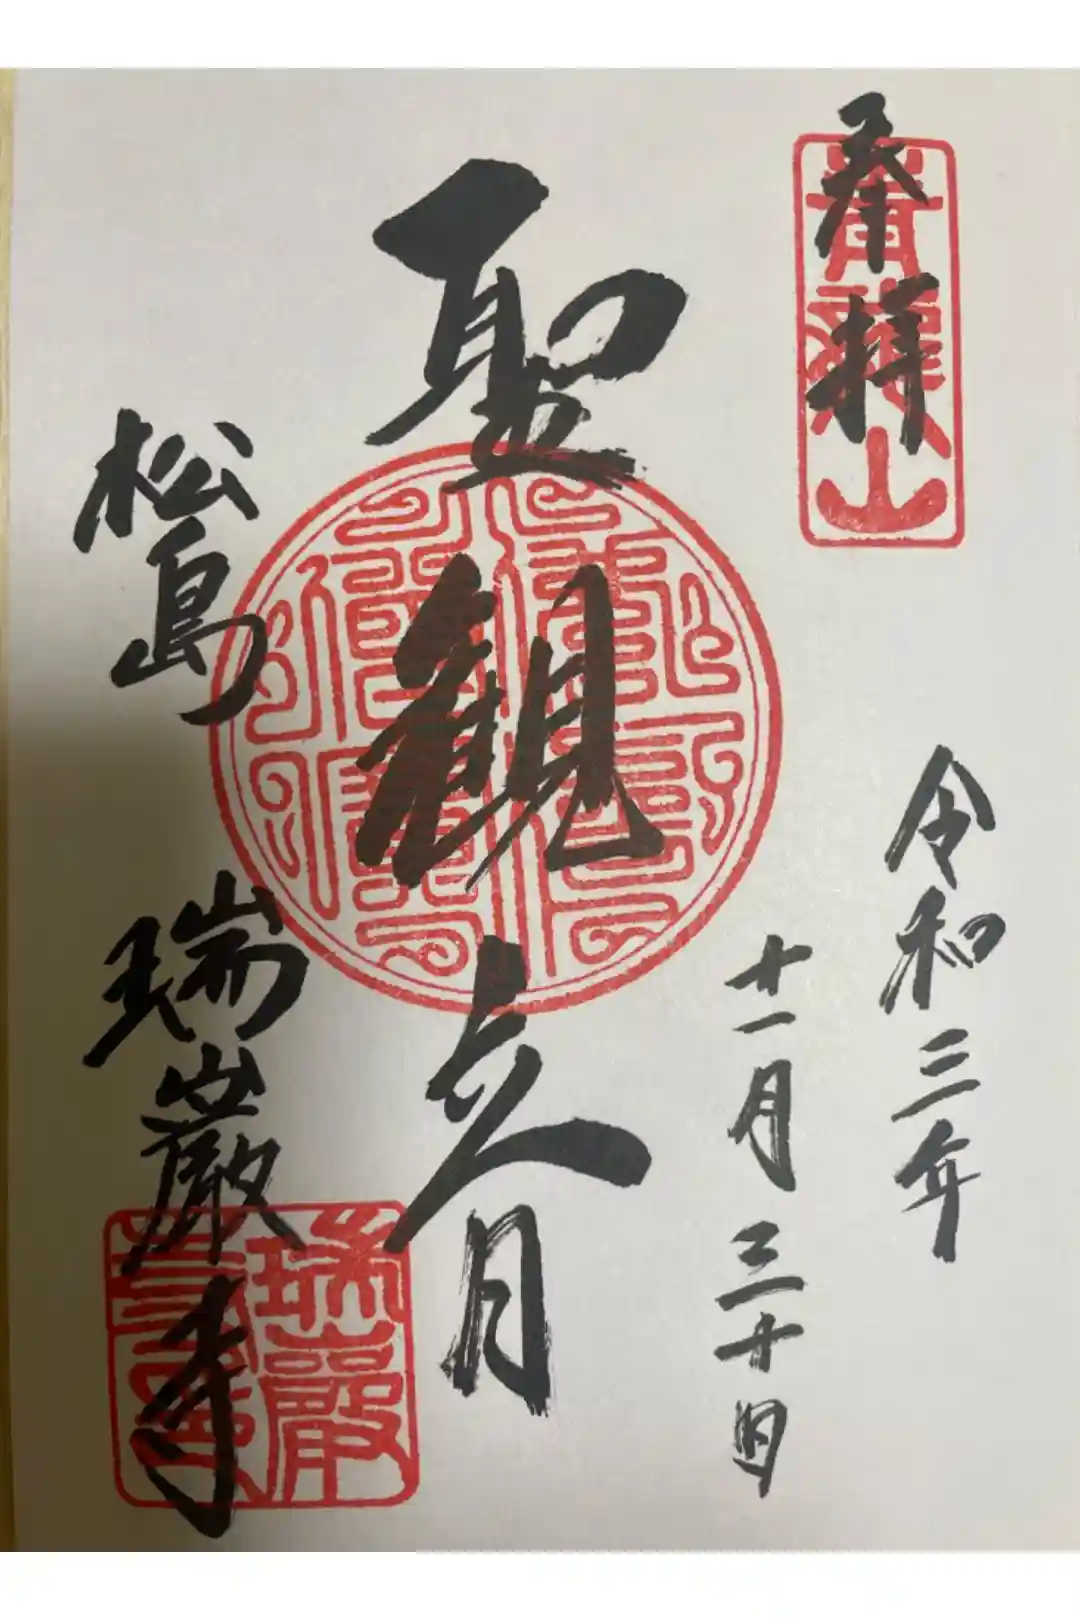 奉拝
青龍山
令和三年
十一月三十日
聖観音
松島
瑞巌寺